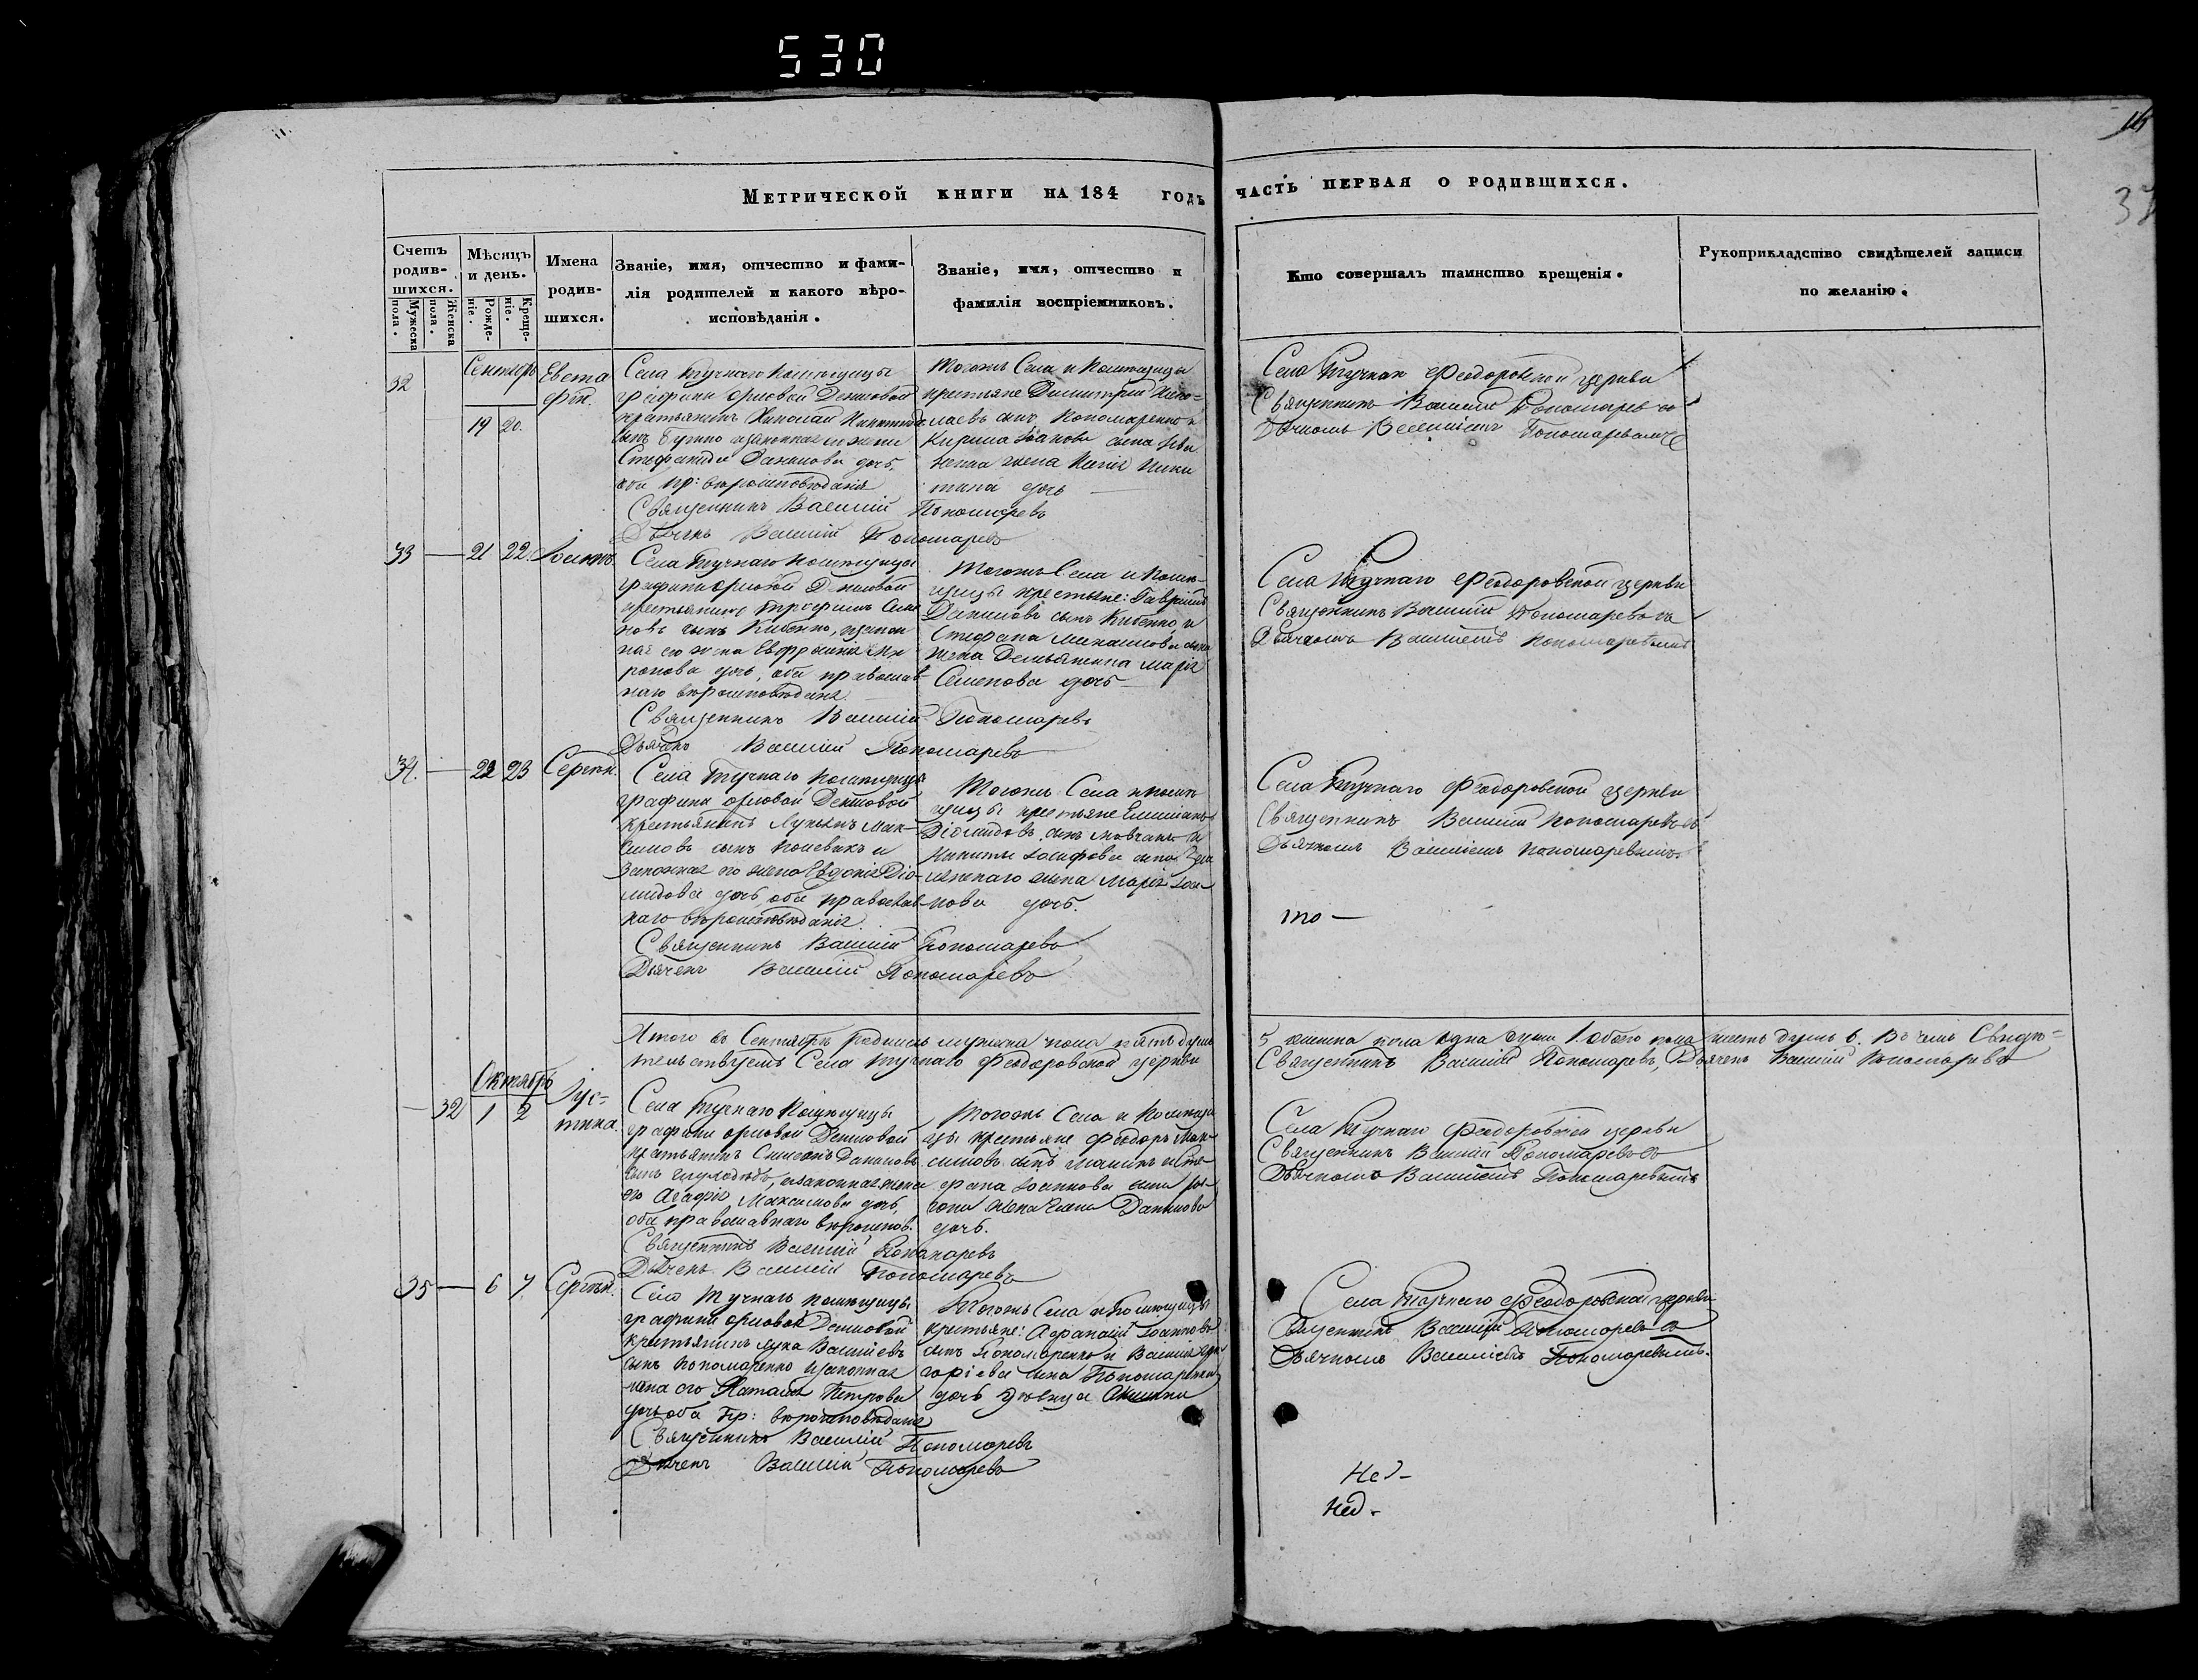 530
16
37
Метрической книги на 184 годъ часть первая о родившихся.
Счетъ родив-шихся.
Мужеска пола.
Женска пола.
Мѣсяцъ и день.
Рожде-ніе.
Креще-ніе.
Имена родив-шихся.
Званіе, имя, отчество и фами-
лія родителей и какого вѣро-
исповѣданія.
Званіе, имя, отчество и
фамилія воспріемниковъ.
Кто совершалъ таинство крещенія.
Рукоприкладство свидѣтелей записи
по желанію.
32
Сентябрь
19 20.
Евста
фій.
Села Тучнаго помѣщицы
графини Орловой Денисовой
крестьянинъ Николай
сынъ законная его жена
Даниловa дочь,
оба пр: вѣроисповѣданія
Священникъ Василій Пономаревъ
Дьячекъ Василій Пономаревъ
Тогожъ Села и Помѣщицы
крестьяне Димитрій Нико-
лаевъ сынъ Пономаренко и
Кирила Іоанова сына
жена
дочь
Села Тучнаго Феодоровской церкви
Священникъ Василій Пономаревъ съ
Дьячкомъ Василіемъ Пономаревымъ
33 — 21 22. Іоаннъ.
Села Тучнаго помѣщицы
графини Орловой Денисовой
крестьянинъ Трофимъ Семе
новъ сынъ Кибенко, и закон
ная его жена Евфросинія Ми
ронова дочь, оба православ
наго вѣроисповѣданія.
Священникъ Василій Пономаревъ
Дьячекъ Василій Пономаревъ
Тогожъ Села и Помѣ-
щицы крестьяне: Гавріилъ
Даниловъ сынъ Кибенко и
Стефана сына
жена Марія
Семенова дочь
Села Тучнаго Феодоровской церкви
Священникъ Василій Пономаревъ съ
Дьячкомъ Василіемъ Пономаревымъ
34. — 22 23 Сергѣй.
Села Тучнаго помѣщицы
графини Орловой Денисовой
крестьянинъ Лукьянъ Мак-
симовъ сынъ и
законная его жена Евдокія Діо-
мидова дочь, оба православ-
наго вѣроисповѣданія.
Священникъ Василій Пономаревъ
Дьячекъ Василій Пономаревъ
Тогожъ Села и помѣ
щицы крестьяне Емиліанъ
Діомидовъ сынъ Мовчанъ и
Никиты Іосифова сына
жена Марія Іоа-
нова дочь.
Села Тучнаго Феодоровской церкви
Священникъ Василій Пономаревъ съ
Дьячкомъ Василіемъ Пономаревымъ
то —
Итого въ Сентябрѣ родилось мужеска пола пять душъ 5 женска пола одна душа 1. обоего пола шесть душъ 6. Въ чемъ Свидѣ-
тельствуемъ Села Тучнаго Феодоровской церкви Священникъ Василій Пономаревъ, Дьячекъ Василій Пономаревъ
Октябрь
— 32 1 2
Іус-
тина.
Села Тучнаго Помѣщицы
графини Орловой Денисовой
крестьянинъ Симеонъ Даниловъ
сынъ законная жена
его Агафія Максимова дочь,
оба православнаго вѣроиспов.
Священникъ Василій Пономаревъ
Дьячекъ Василій Пономаревъ
Тогожъ Села и Помѣщи
цы крестьяне Феодоръ Мак-
симовъ сынъ и Сте-
фана Іоаннова сына
жена Данилова
дочь.
Села Тучнаго Феодоровской церкви
Священникъ Василій Пономаревъ съ
Дьячкомъ Василіемъ Пономаревымъ
35 — 6 7. Сергѣй.
Села Тучнаго помѣщицы
графини Орловой Денисовой
крестьянинъ Лука Василіевъ
сынъ Пономаренко и законная
жена его Наталія Петрова
дочь оба Пр: вѣроисповѣданія
Священникъ Василій Пономаревъ
Дьячекъ Василій Пономаревъ
Тогожъ Села и Помѣщицы
крестьяне: Афанасій Іоанновъ
сынъ Пономаренко и Василія Гри
горіева сына Пономаренка
дочь дѣвица
Села Тучнаго Феодоровской церкви
Священникъ Василій Пономаревъ съ
Дьячкомъ Василіемъ Пономаревымъ.
Нед-
Нед-